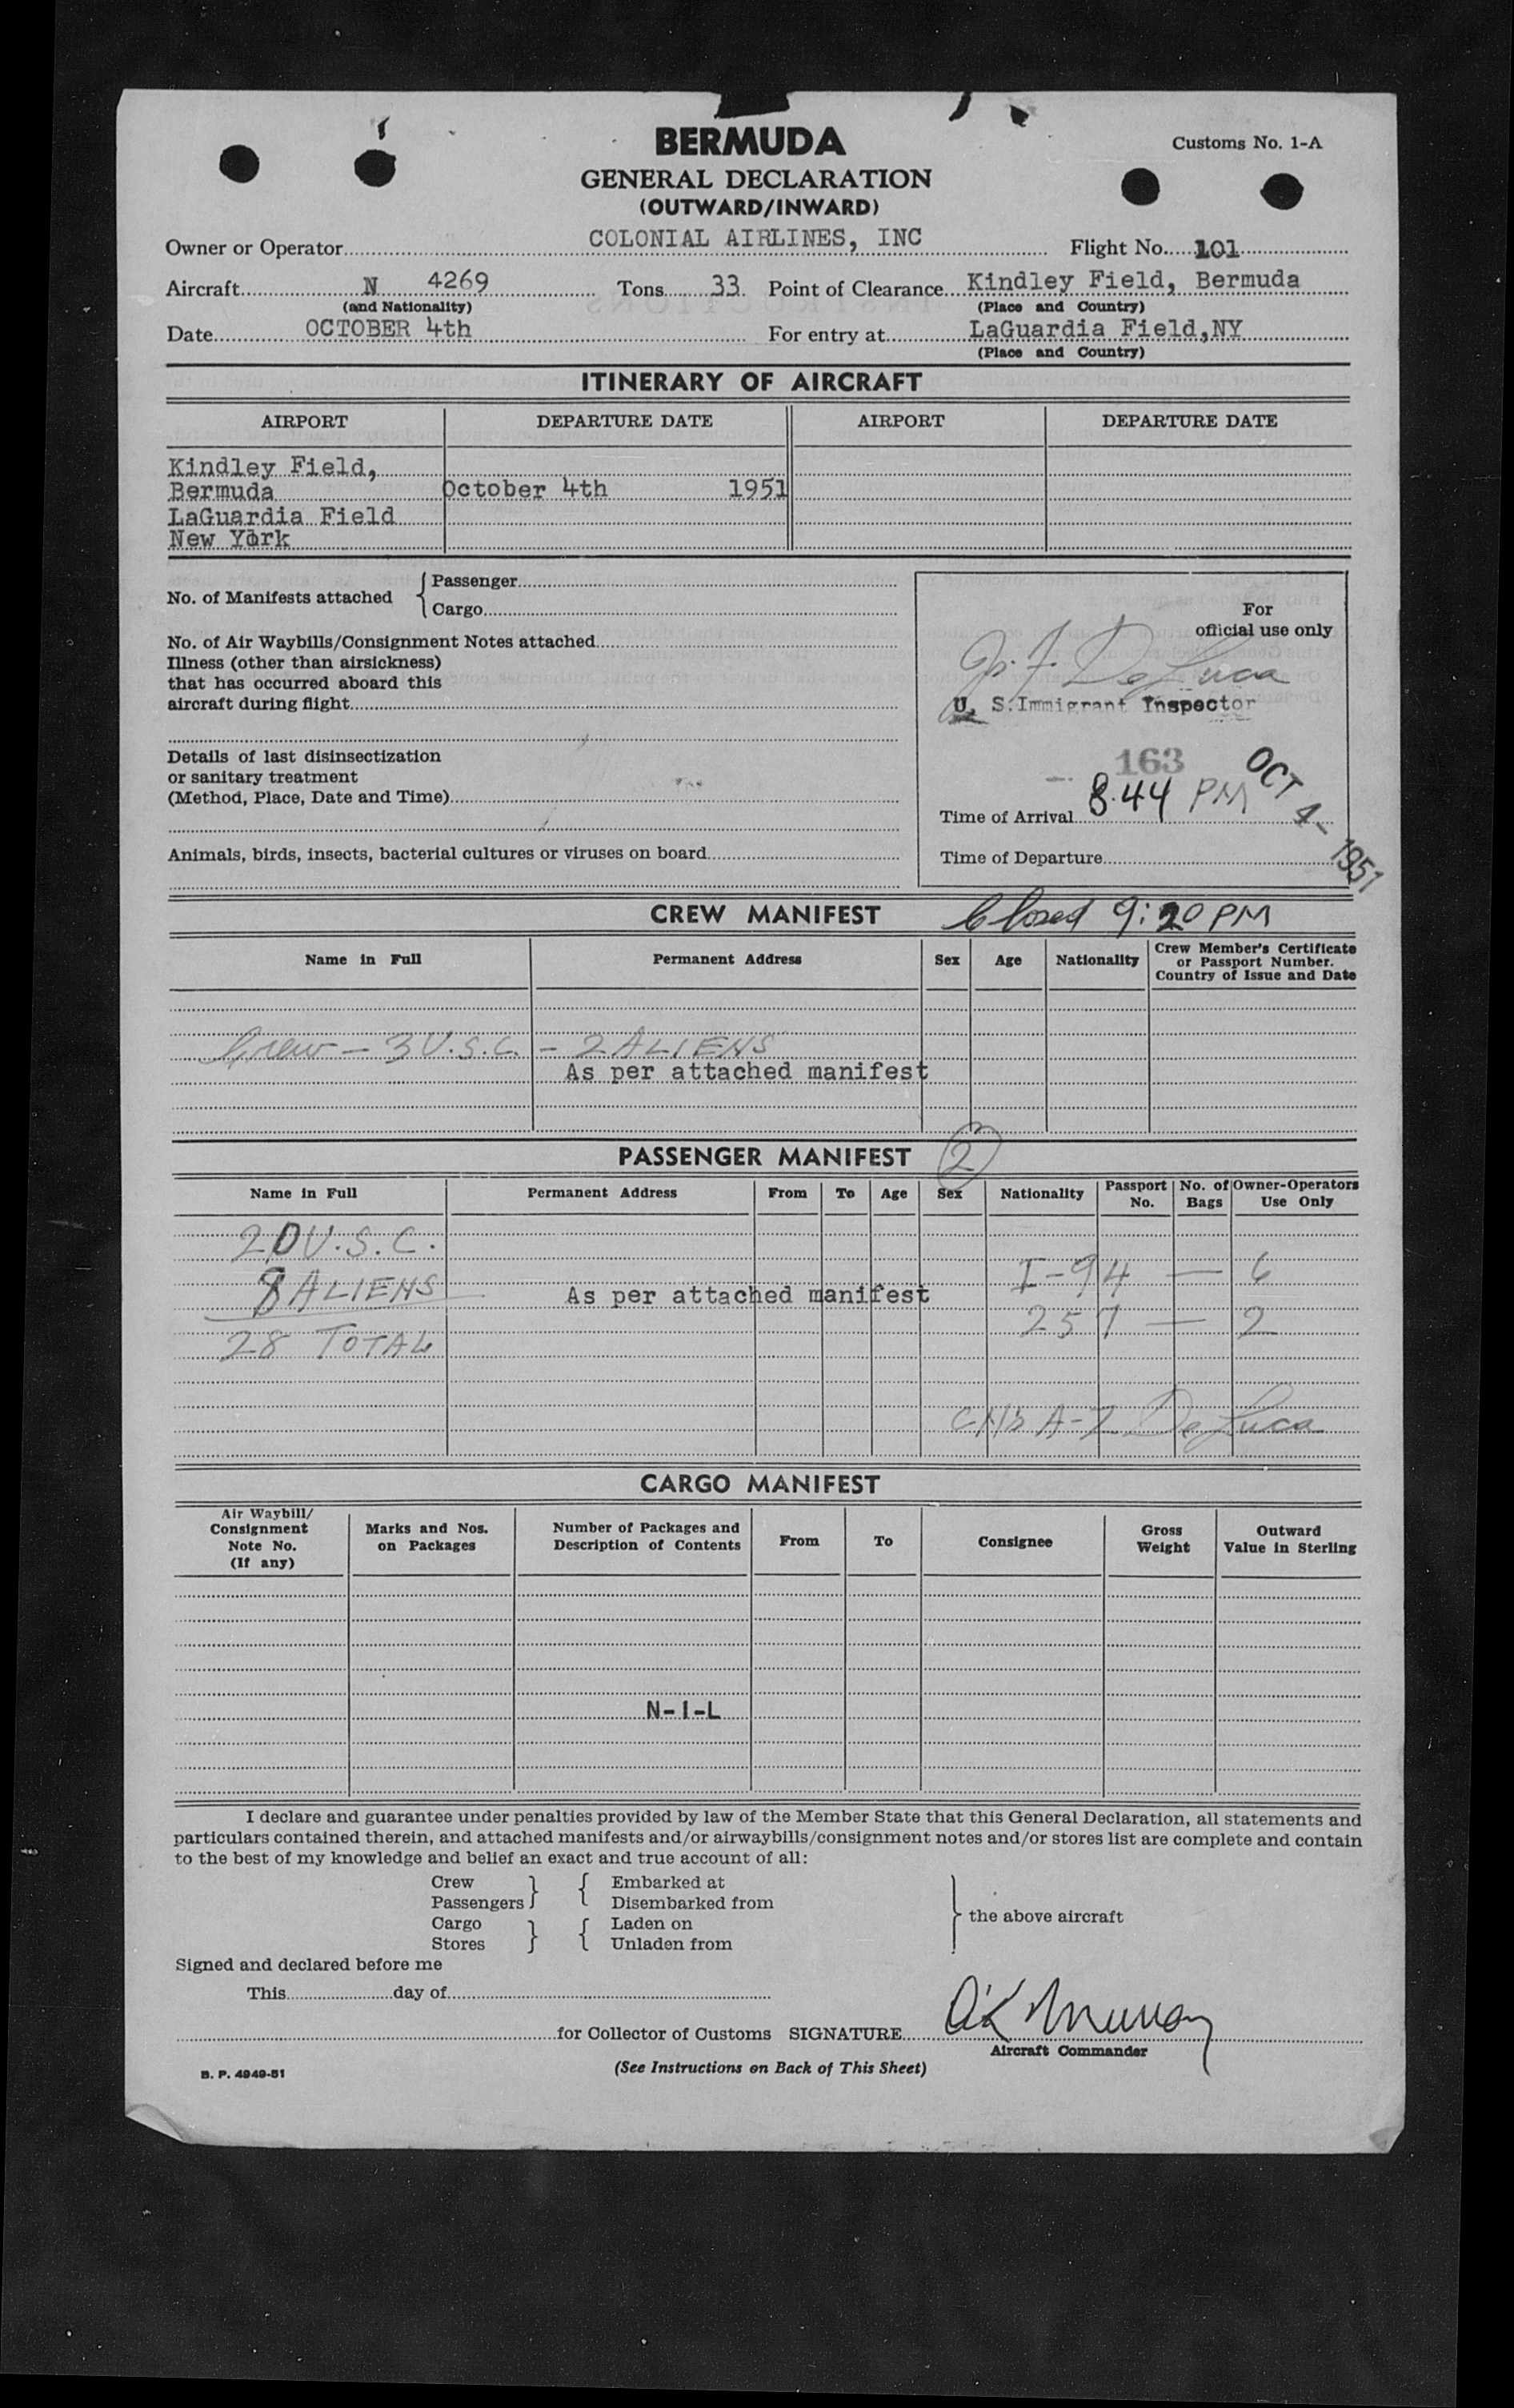 BERMUDA
Customs No. 1-A
GENERAL DECLARATION
(OUTWARD/INWARD)
Owner or Operator COLONIAL AIRLINES, INC Flight No. 101
Aircraft N 4269 Tons 33 Point of Clearance Kindley Field, Bermuda
(and Nationality) (Place and Country)
Date OCTOBER 4th For entry at LaGuardia Field,NY
(Place and Country)
ITINERARY OF AIRCRAFT
AIRPORT DEPARTURE DATE AIRPORT DEPARTURE DATE
Kindley Field,
Bermuda October 4th 1951
LaGuardia Field
New York
No. of Manifests attached { Passenger
Cargo
For
official use only
No. of Air Waybills/Consignment Notes attached
Illness (other than airsickness)
that has occurred aboard this
aircraft during flight
De Luca
U. S. Immigrant Inspector
Details of last disinsectization
or sanitary treatment
(Method, Place, Date and Time)
163
OCT 4 - 1951
Time of Arrival 8.44 PM
Animals, birds, insects, bacterial cultures or viruses on board
Time of Departure
CREW MANIFEST Closed 9:20 PM
Name in Full Permanent Address Sex Age Nationality Crew Member's Certificate
or Passport Number.
Country of Issue and Date
Crew - 3 U.S.C. - 2 ALIENS
As per attached manifest
PASSENGER MANIFEST 2
Name in Full Permanent Address From To Age Sex Nationality Passport No. No. of Bags Owner-Operators Use Only
20 U.S.C.
8 ALIENS I-94 — 6
As per attached manifest
28 TOTAL 257 — 2
A-Z De Luca
CARGO MANIFEST
Air Waybill/
Consignment
Note No.
(If any)
Marks and Nos.
on Packages
Number of Packages and
Description of Contents
From To Consignee
Gross
Weight
Outward
Value in Sterling
N-I-L
I declare and guarantee under penalties provided by law of the Member State that this General Declaration, all statements and
particulars contained therein, and attached manifests and/or airwaybills/consignment notes and/or stores list are complete and contain
to the best of my knowledge and belief an exact and true account of all:
Crew Embarked at
Passengers Disembarked from
Cargo Laden on
Stores Unladen from
the above aircraft
Signed and declared before me
This day of
for Collector of Customs SIGNATURE Murray
Aircraft Commander
B. P. 4949-51
(See Instructions on Back of This Sheet)